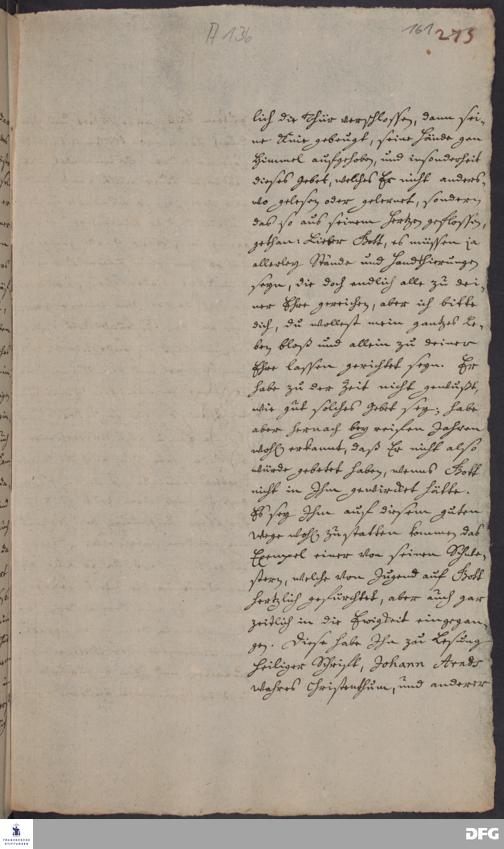 A 136
161
275
lich die Thür verschlossen, dann sei-
ne Knie gebeugt, seine Hände gen
Himmel aufgehoben, und insonderheit
dieses Gebet, welches Er nicht anders-
wo gelesen oder gelernet, sondern
das so aus seinem Hertzen geflossen,
gethan: Lieber Gott, es müssen ja
allerley Stände und Handthierungen
seyn, die doch endlich alle zu dei-
ner Ehre gereichen, aber ich bitte
dich, du wollest mein gantzes Le-
ben bloß und allein zu deiner
Ehre lassen gerichtet seyn. Er
habe zu der Zeit nicht gewußt,
wie gut solches Gebet sey, habe
aber hernach bey reifen Jahren
wohl erkannt, daß Er nicht also
würde gebetet haben, wenns Gott
nicht in Ihm gewircket hätte.
Es sey Ihm auf diesem guten
Wege wohl zustatten kommen das
Exempel einer von seinen Schwe-
stern, welche von Jugend auf Gott
hertzlich gefürchtet, aber auch gar
zeitlich in die Ewigkeit eingegan-
gen. Diese habe Ihn zu Lesung
Heiliger Schrift, Johann Arnds
wahres Christenthum, und anderer
FRANCKESCHE
STIFTUNGEN
DFG